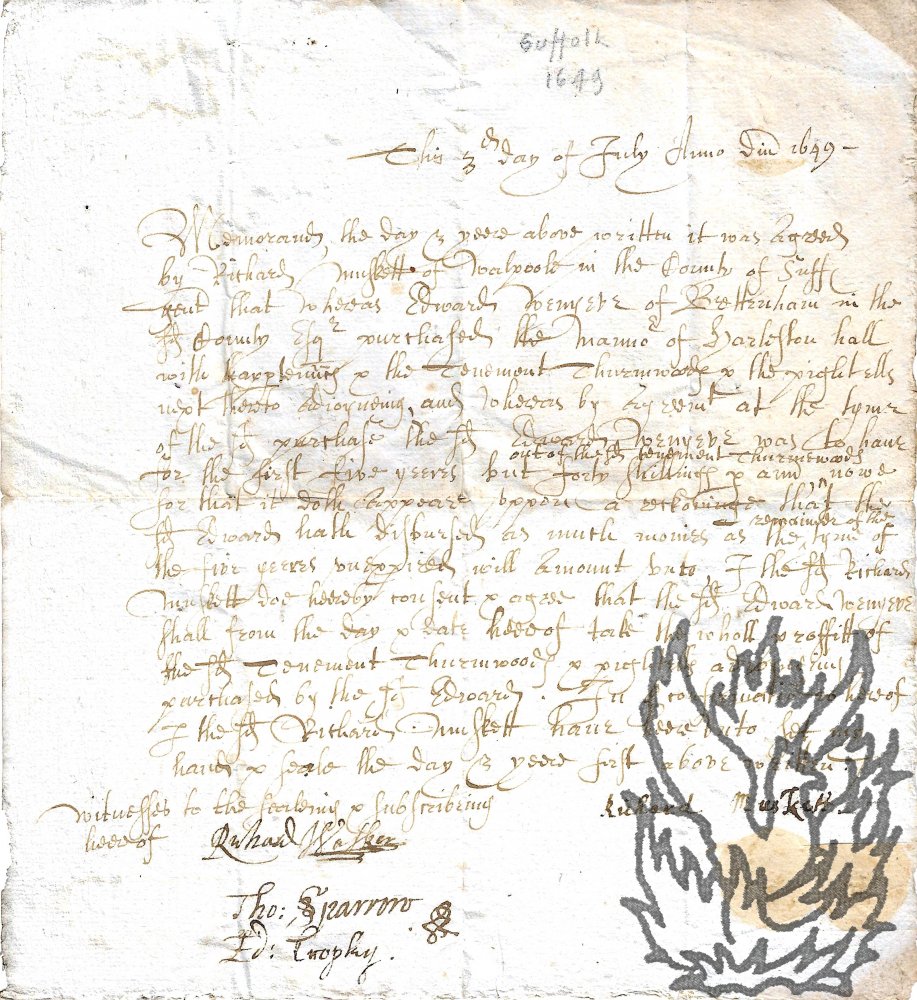 Suffolk
1649
This 3th day of July Anno Dm 1649
Memorand the day & yeere above written it was Agreed
by Richard Muskett of Walpoole in the County of Suff
gent that whereas Edward Wenyeve of Brettenham in the
sd County Esqr purchased the Mannor of Harleston hall
with thappten'ncs & the Tenement Thurmwoods & the pightells
next thereto adioyneing, and whereas by Agreemt at the tyme
of the sd purchase the sd Edward Wenyeve was to have
out of the sd tenement Thurmwoods
for the first five yeeres but forty shillings p ann, nowe
for that it doth Appeare uppon a reckoninge that the
remainder of the
sd Edward hath disbursed as much monies as the tyme of
the five yeeres unexpired will Amount unto, I the sd Richard
Muskett doe heereby consent & agree that the sd Edward Wenyeve
shall from the day & date heereof take the wholl proffitt of
the sd Tenement Thurmwoods & pightells adioyneing
purchased by the sd Edward. In hereof
I the sd Richard Muskett have heereunto set my
hand & seale the day & yeere first above written
Witnesses to the sealeing & subscribing
heereof
Richard Muskett
Richard Walker
Tho: Sparrow
Ed: Cropley.